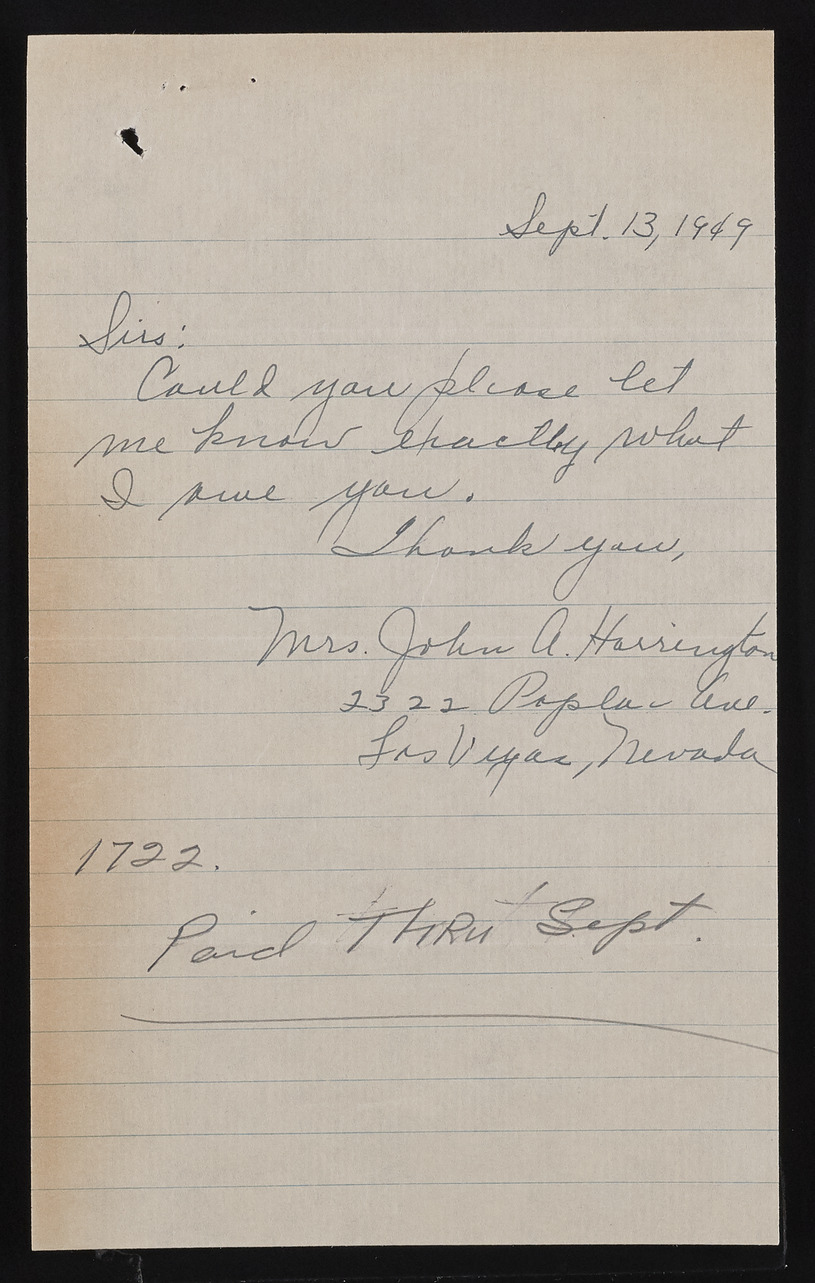 Sept. 13, 1949
Sirs:
Could you please let
me know exactly what
I owe you.
Thank you,
Mrs. John A. Harrington
2322 Poplar Ave.
Las Vegas, Nevada
1722.
Paid THRU Sept.